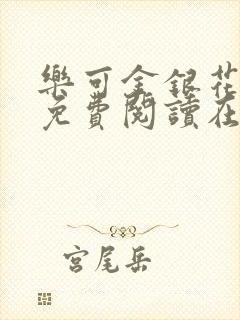 樂可金銀花
免費閱讀在
宮尾岳